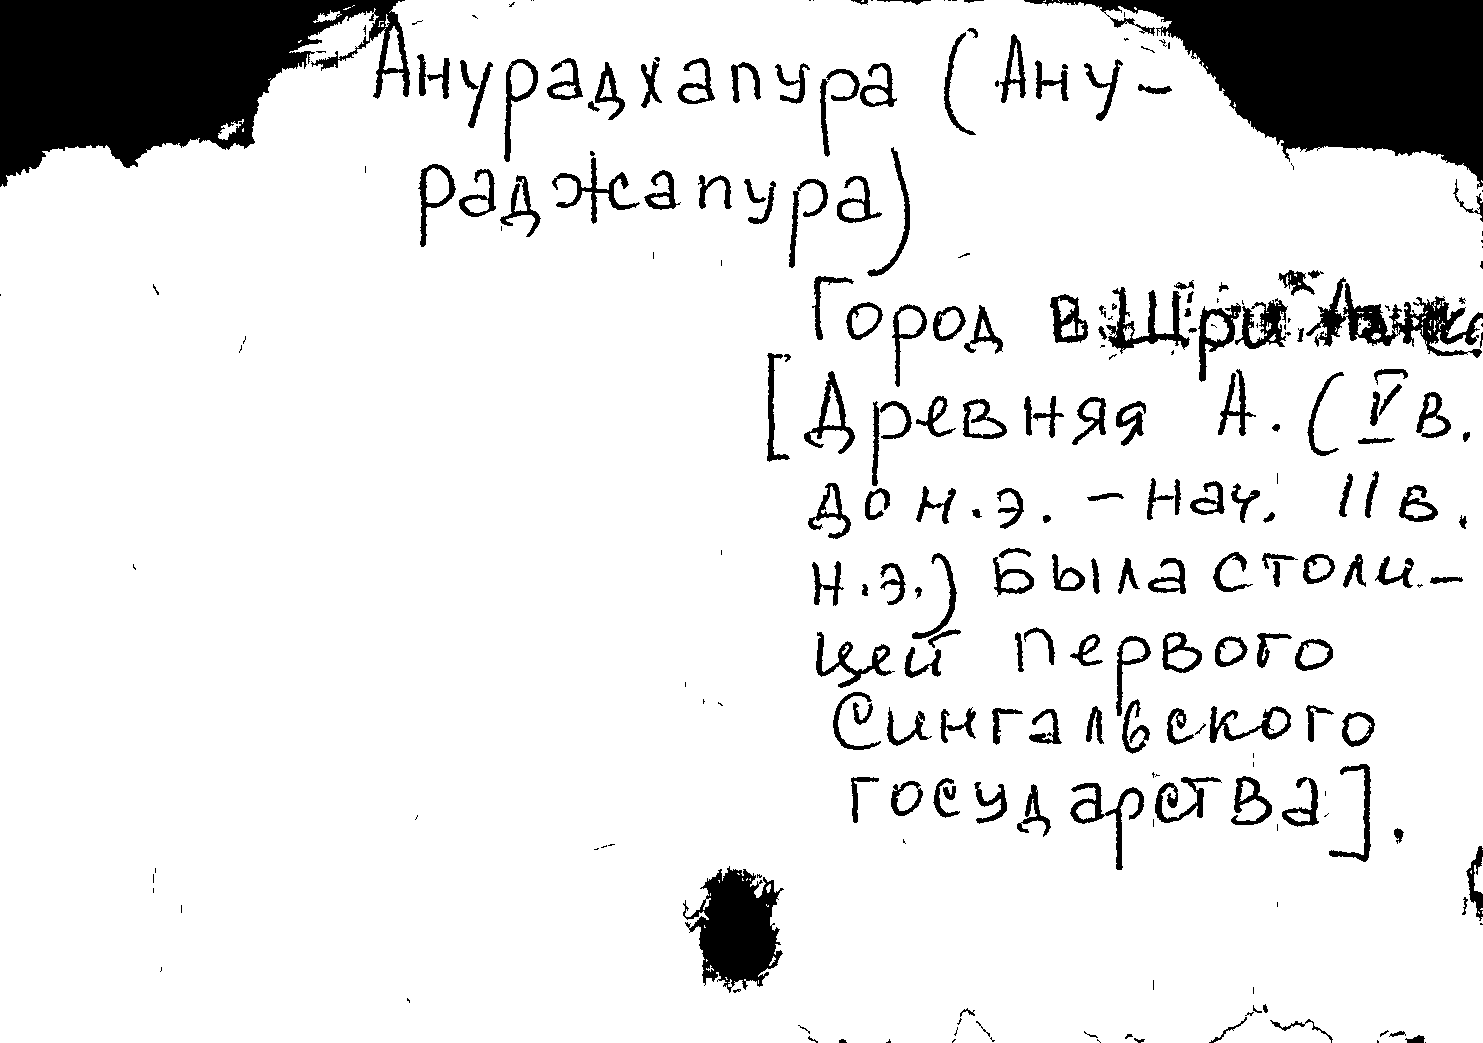 Анурадхапура (Ану-
раджапура)
Город в Шри Ланка
[Древняя А. (V в.
до н.э. - нач. II в.
н.э.) Была столи-
цей первого
Сингальского
государства].